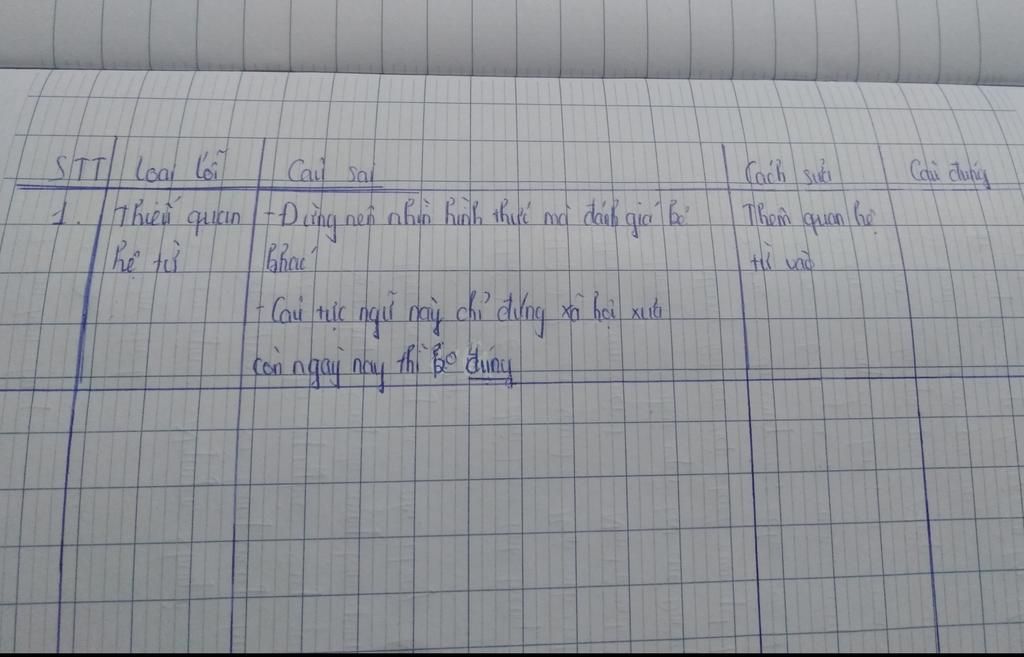 STT Loại lỗi Câu sai Cách sửa Câu đúng
1. Thiếu quan - Đừng nên nhìn hình thức mà đánh giá kẻ Thêm quan hệ
hệ từ khác từ vào
- Câu tục ngữ này chỉ đúng xã hội xưa
còn ngày nay thì ko đúng